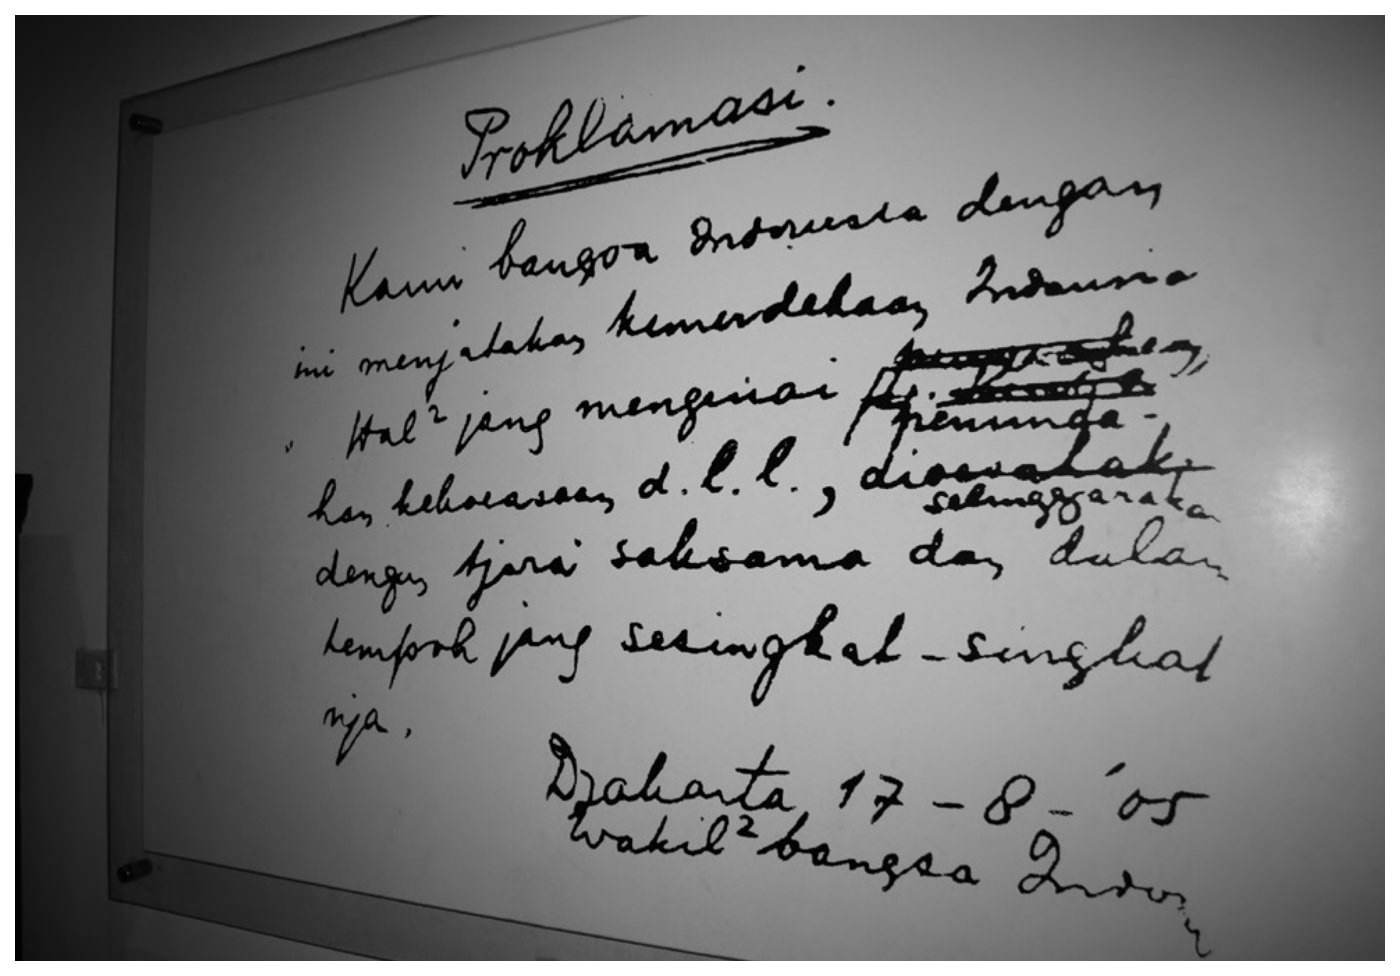 Proklamasi.
Kami bangsa Indonesia dengan
ini menjatakan kemerdekaan Indonesia
Hal² jang mengenai
peminda-
han kekoeasaan d.l.l., dioesahakan
selenggarakan
dengan tjara saksama dan dalam
tempoh jang sesingkat-singkat
nja.
Djakarta 17 - 8 - '05
Wakil² bangsa Indon